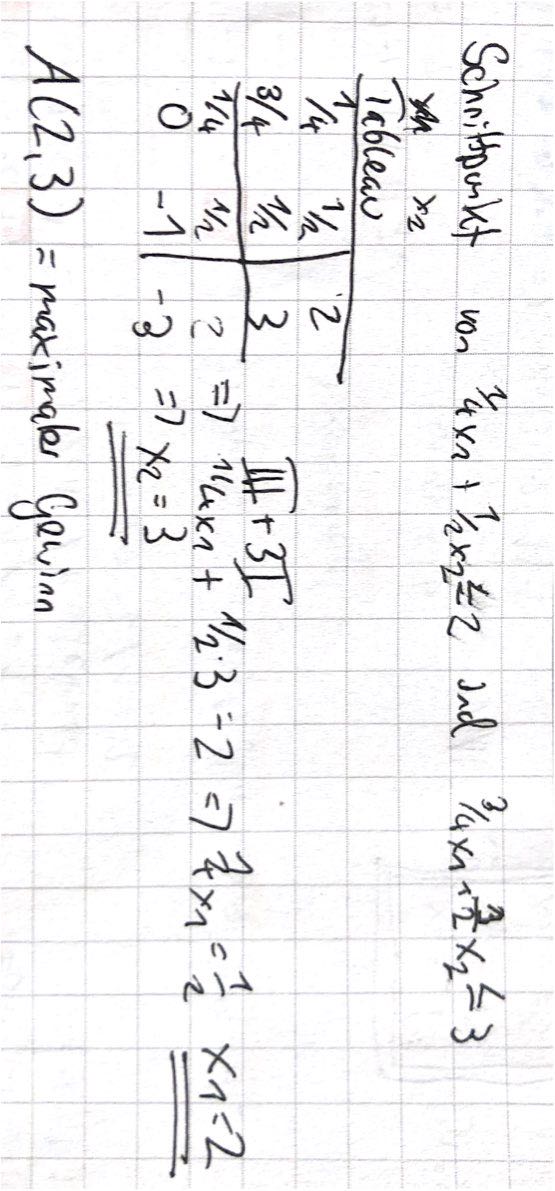 Schnittpunkt von 1/4x1 + 1/2x2 ≤ 2 und 3/4x1 + 1/2 x2 ≤ 3
x1 x2
Tableau
1/4 1/2 | 2
3/4 1/2 | 3 III + 3I
1/4 1/2 | 2 => 1/4x1 + 1/2·3 = 2 => 1/4x1 = 1/2 x1 = 2
0 -1 | -3 => x2 = 3
A(2,3) = maximaler Gewinn